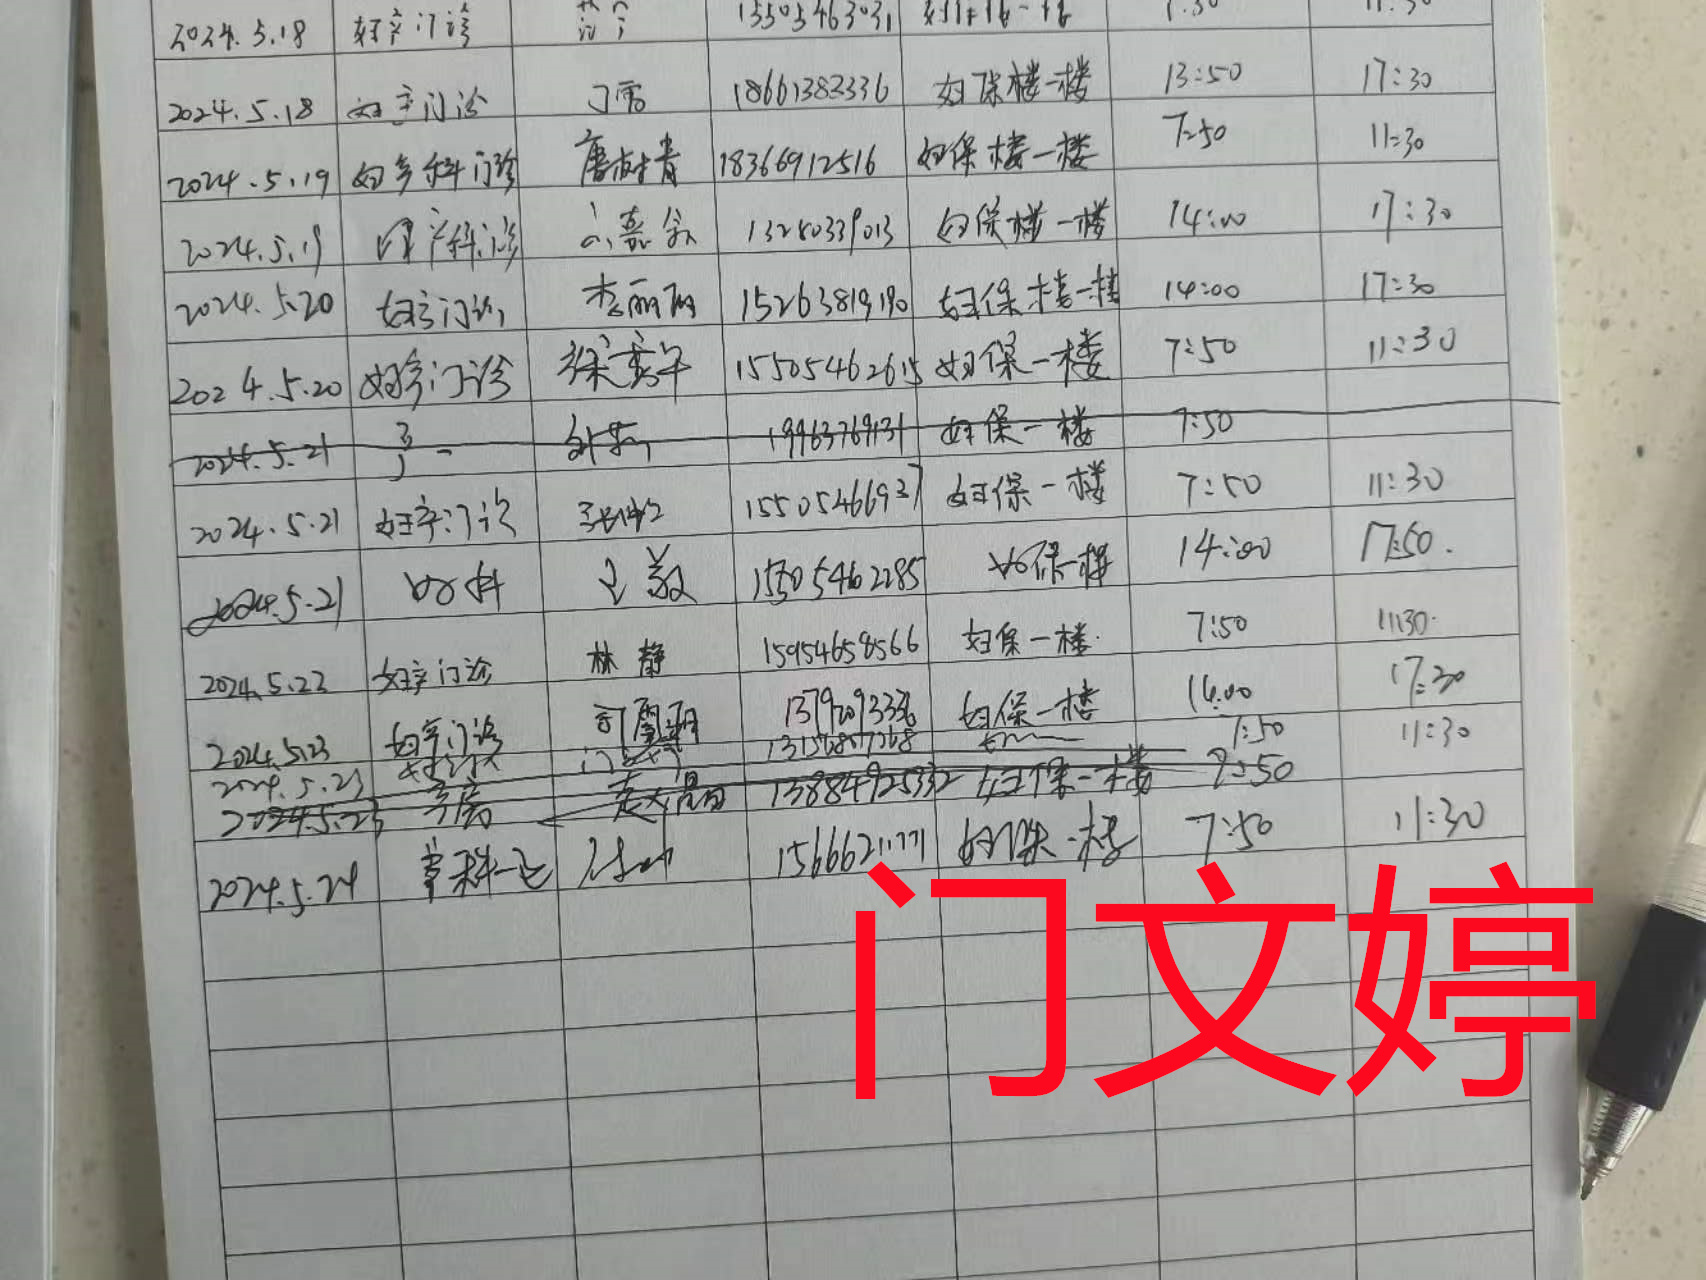 2024.5.18 妇产门诊 15505463031 7:30 11:30
2024.5.18 妇产门诊 丁雪 18661383336 妇保楼一楼 13:50 17:30
2024.5.19 妇产科门诊 唐树青 18366912516 妇保楼一楼 7:50 11:30
2024.5.19 妇产科门诊 13280339013 妇保楼一楼 14:00 17:30
2024.5.20 妇产门诊 李丽丽 15263819190 妇保楼一楼 14:00 17:30
2024.5.20 妇产门诊 15505462615 妇保一楼 7:50 11:30
2024.5.21 19963769131 妇保一楼 7:50
2024.5.21 妇产门诊 15505466937 妇保一楼 7:50 11:30
2024.5.21 妇科 15505462285 妇保一楼 14:00 17:50.
2024.5.22 妇产门诊 林静 15954658566 妇保一楼. 7:50 11:30.
2024.5.23 妇产门诊 妇保一楼 14:00 17:30
2024.5.23 7:50 11:30
2024.5.23 13884925332 妇保一楼 7:50
2024.5.24 15666211771 妇保一楼 7:50 11:30
门文婷